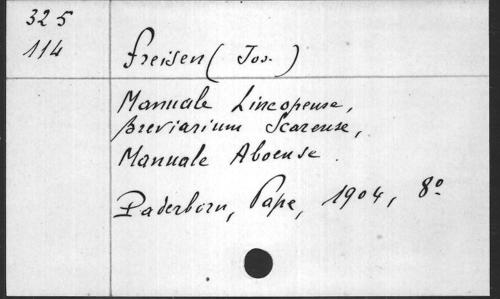 325
114
Freisen (Jos.)
Manuale Lincopense,
Breviarium Scarense,
Manuale Aboense.
Paderborn, Pape, 1904, 8º